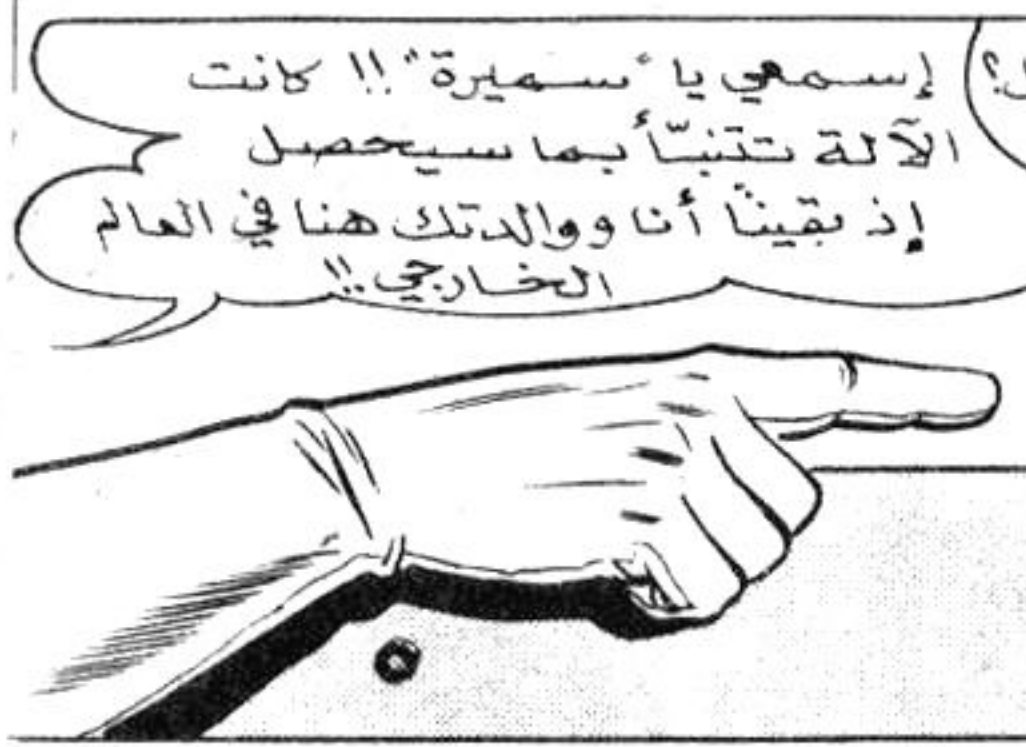 إسمعي يا "سميرة" !! كانت
الآلة تتنبّأ بما سيحصل
إذ بقينا أنا ووالدتك هنا في العالم
الخارجي !!